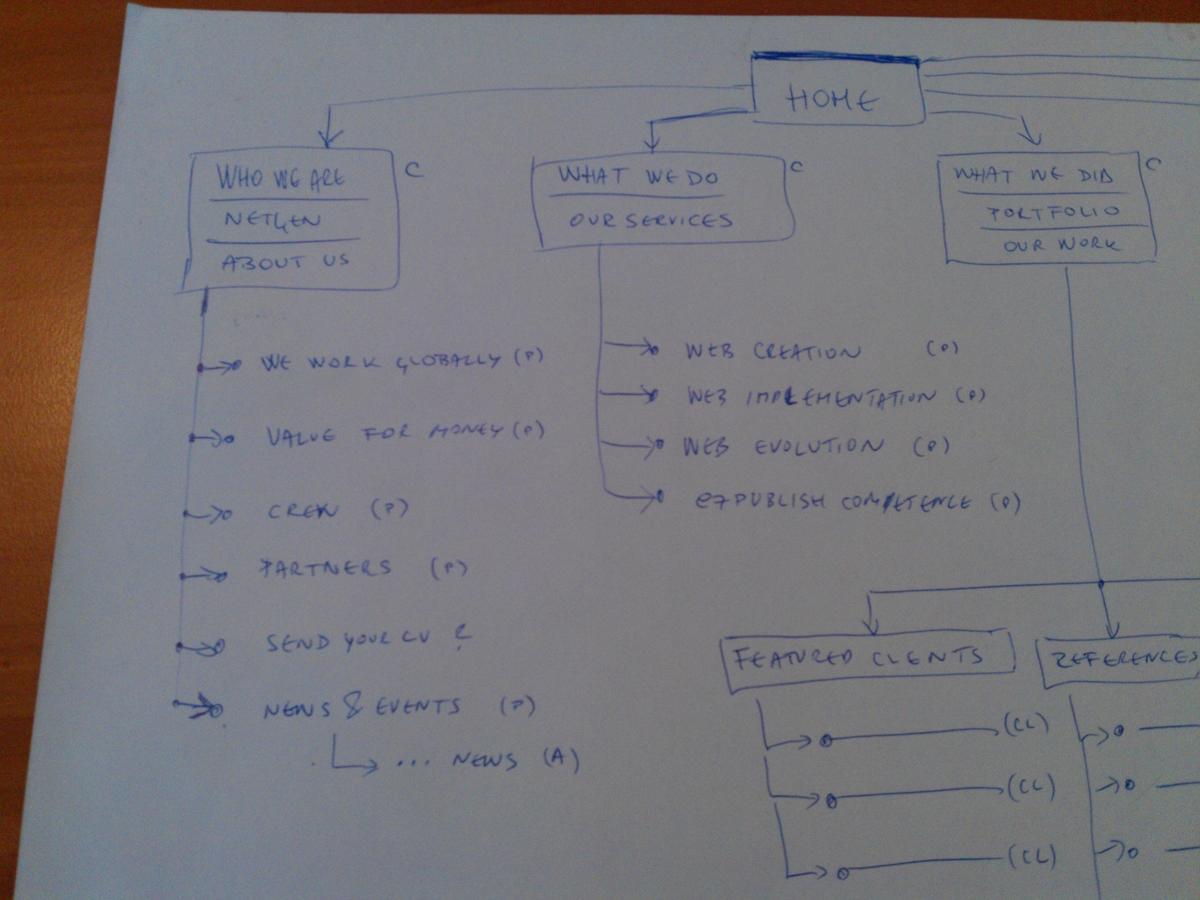 HOME
WHO WE ARE C
NETGEN
ABOUT US
WE WORK GLOBALLY (P)
VALUE FOR MONEY (P)
CREW (P)
PARTNERS (P)
SEND YOUR CV ?
NEWS & EVENTS (P)
... NEWS (A)
WHAT WE DO C
OUR SERVICES
WEB CREATION (P)
WEB IMPLEMENTATION (P)
WEB EVOLUTION (P)
eZPUBLISH COMPETENCE (P)
WHAT WE DID C
PORTFOLIO
OUR WORK
FEATURED CLIENTS
(CL)
(CL)
(CL)
REFERENCES